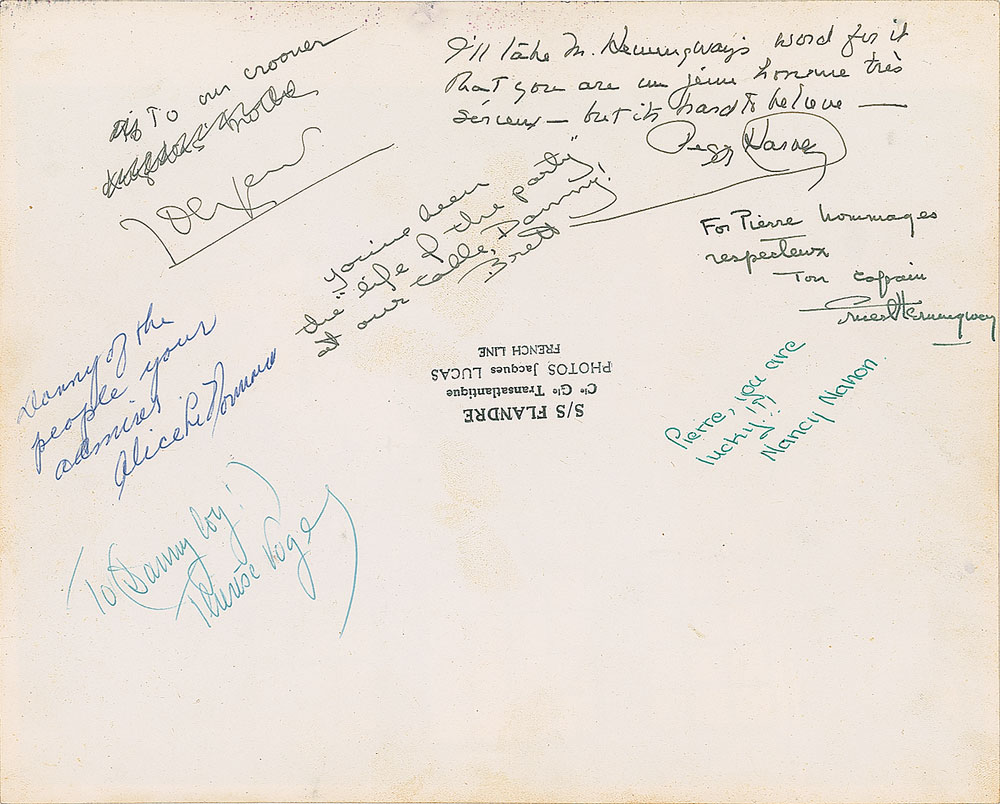 To our crooner
I'll take M. Hemingway's word for it
that you are un jeune homme très
sérieux — but it's hard to believe —
Peggy Harvey
You've been
the "life of the party"
at our table, Danny!
Brett
For Pierre hommages
respecteux
Ton copain
Ernest Hemingway
Danny of the
people your
admirer
Alice
To Danny boy!
Therese
Pierre, you are
lucky!!!
Nancy Nahon
S/S FLANDRE
Cie Gle Transatlantique
PHOTOS Jacques LUCAS
FRENCH LINE